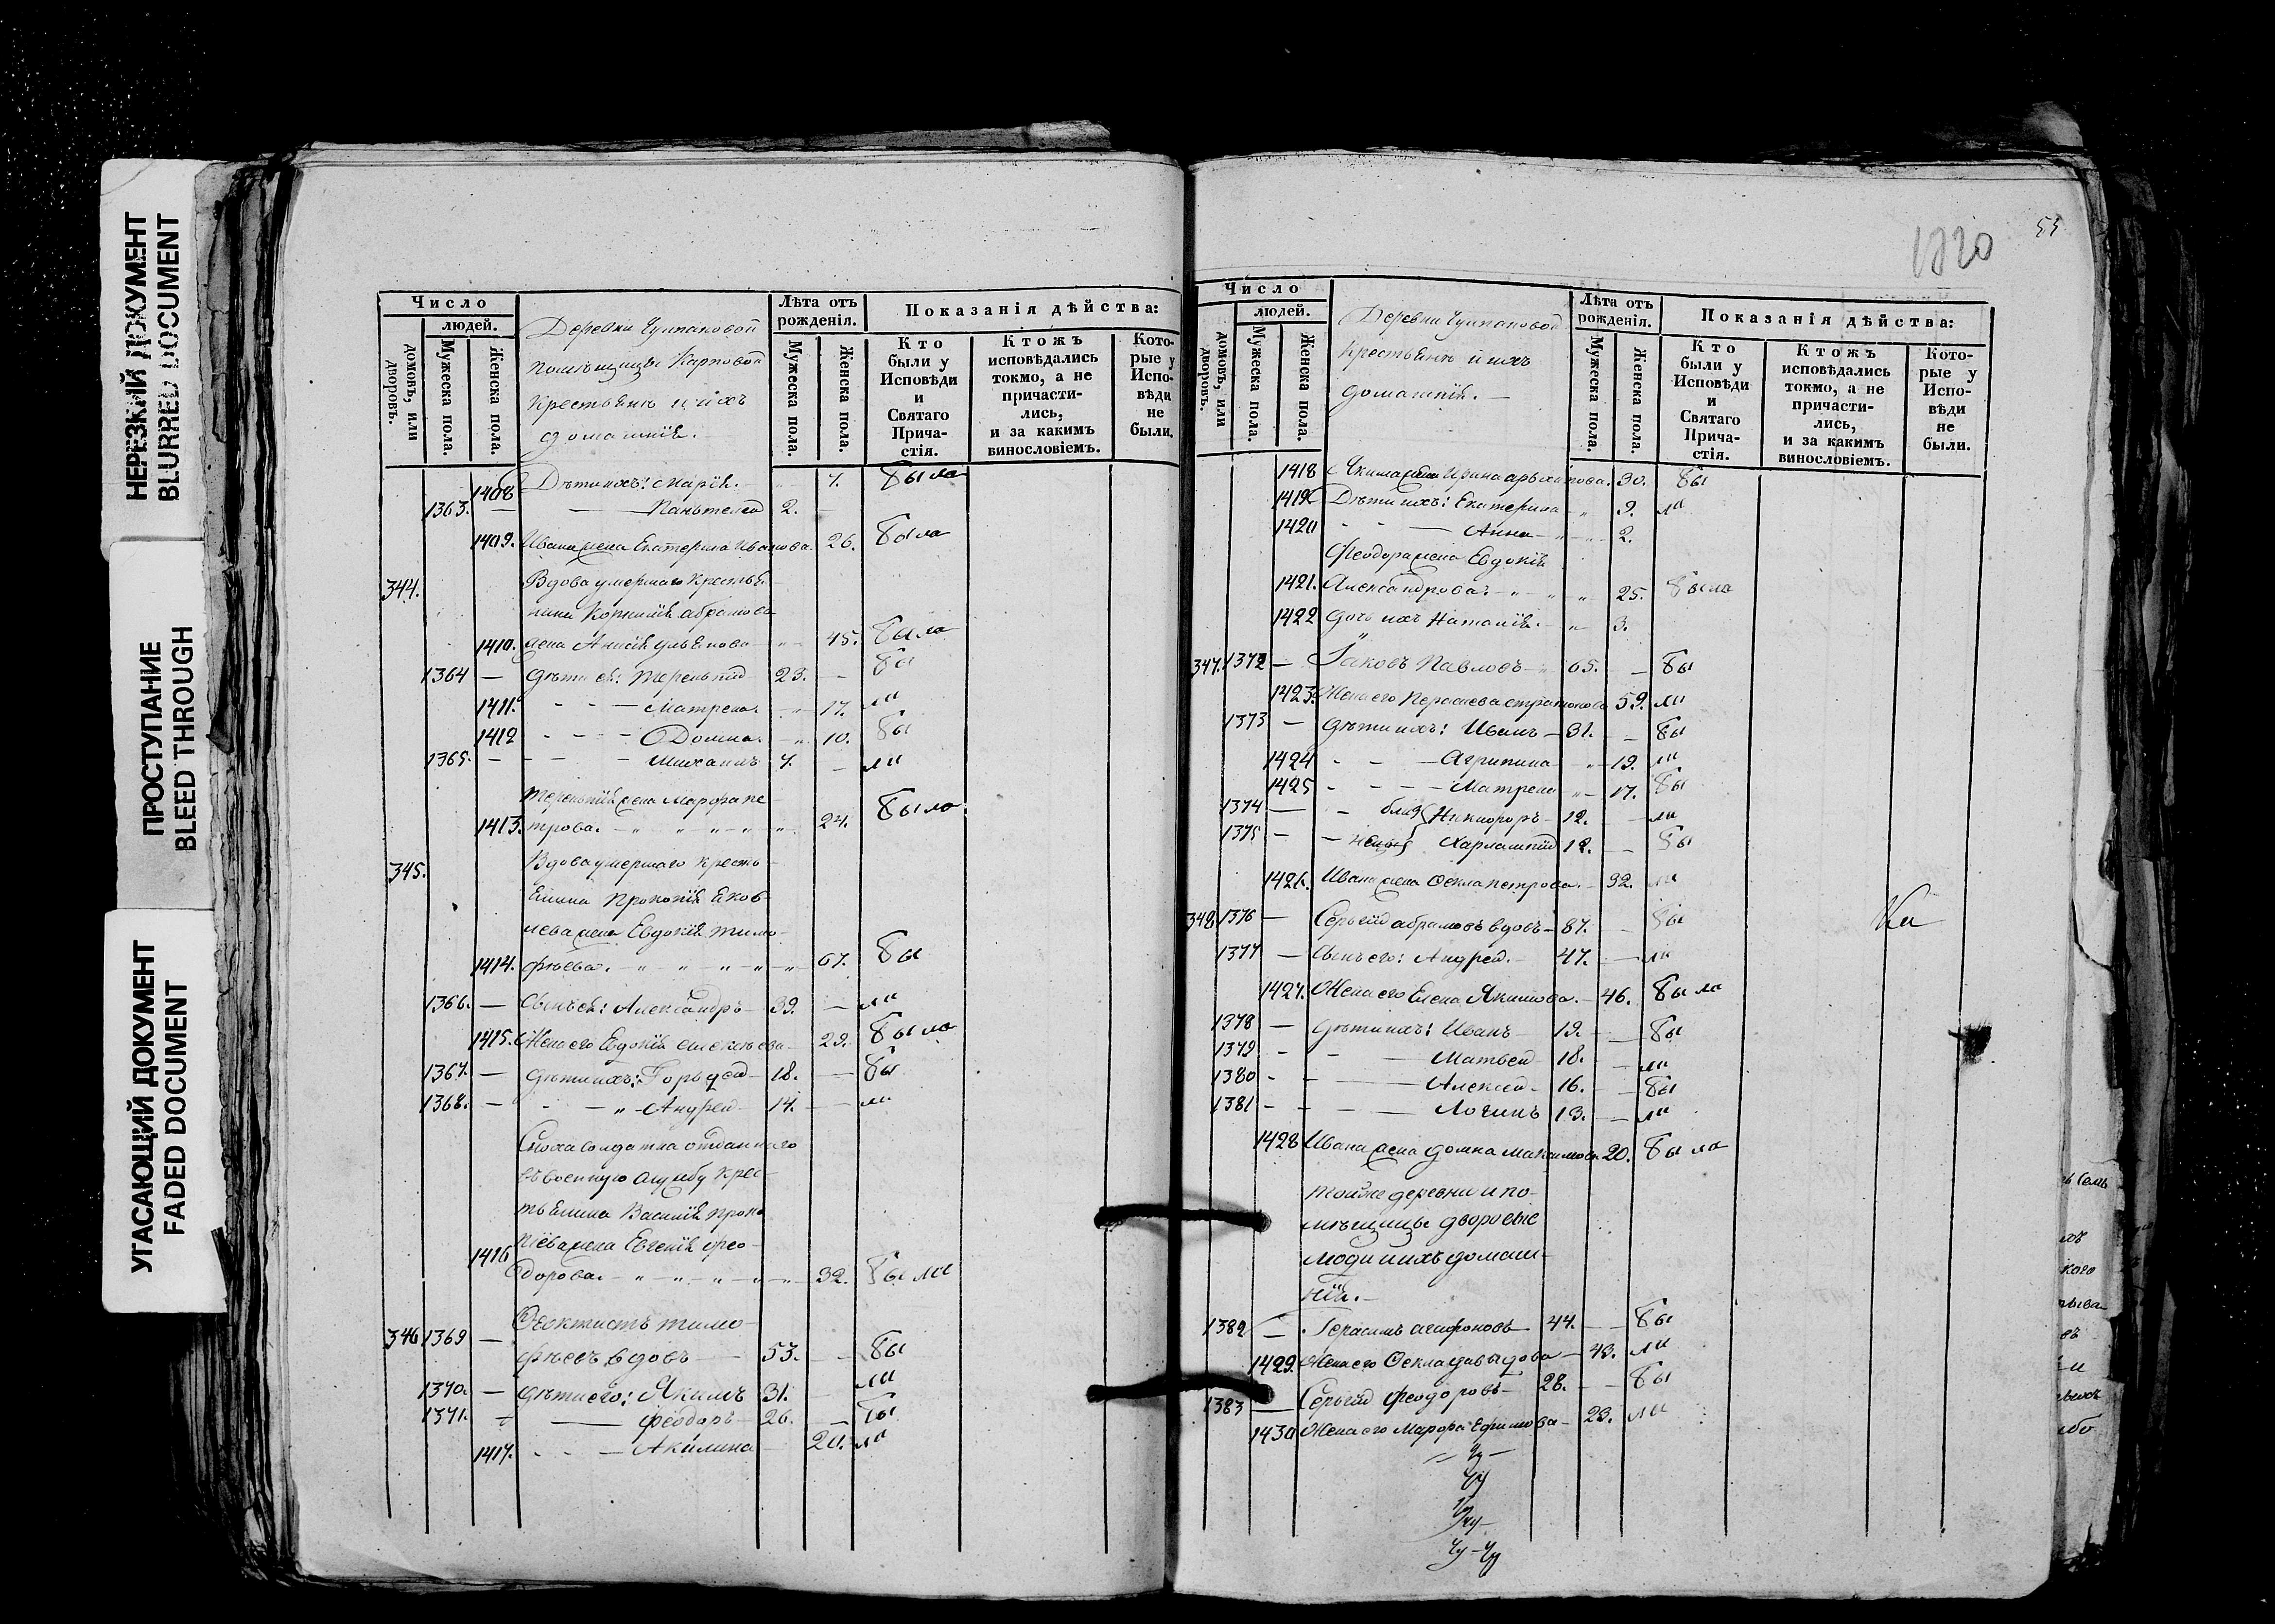 НЕРЕЗКИЙ ДОКУМЕНТ
BLURRED DOCUMENT
ПРОСТУПАНИЕ
BLEED THROUGH
УГАСАЮЩИЙ ДОКУМЕНТ
FADED DOCUMENT
Число
людей.
домовъ, или дворовъ.
Мужеска пола.
Женска пола.
Деревни Чулпановой
помѣщицы Карповой
крестьяне и ихъ
домашнія.
Лѣта отъ рожденія.
Мужеска пола.
Женска пола.
Показанія дѣйства:
Кто были у Исповѣди и Святаго Причастія.
Ктожъ исповѣдались токмо, а не причастились, и за какимъ винословіемъ.
Которые у Исповѣди не были.
1408 Дѣти ихъ: Марія. 7. была
1363. — Пантелей 2. —
1409. Ивана жена Екатерина Иванова. 26. была
344. Вдова умершаго крестья-
нина Корнилія абрамова
1410. жена Анисія ульянова 45. была
1364 — дѣти ея: Терентій 23. — бы
1411. — Матрена. 17. ли
1412 — Домна. 10. бы
1365. — Михаилъ 7. — ли
Терентія жена Марфа пе-
1413. трова. 24. была
345. Вдова умершаго кресть-
янина Прокопія яков-
лева жена Евдокія тимо-
1414. фѣева. 67. бы
1366. — Сынъ ея: Александръ 39. — ли
1415. Жена его Евдокія алексѣева 29. была
1367. — дѣти ихъ: Гордѣй 18. — бы
1368. — Андрей 14. — ли
Сноха солдатка отданнаго
въ военную службу крес-
тьянина Василія проко
1416 піева жена Евгенія фео-
дорова. 32. были
346 1369 — Феоктистъ тимо-
фѣевъ вдовъ 53. — бы
1370. — дѣти его: Якимъ 31. — ли
1371. — феодоръ 26. — бы
1417. — Акилина 20. ли
1820
55
Число
людей.
домовъ, или дворовъ.
Мужеска пола.
Женска пола.
Деревни Чулпановой
крестьяне и ихъ
домашнія.
Лѣта отъ рожденія.
Мужеска пола.
Женска пола.
Показанія дѣйства:
Кто были у Исповѣди и Святаго Причастія.
Ктожъ исповѣдались токмо, а не причастились, и за какимъ винословіемъ.
Которые у Исповѣди не были.
1418 Якима жена Ирина архипова. 30. бы
1419 Дѣти ихъ: Екатерина 9. ли
1420 — Анна 2.
Феодора жена Евдокія
1421. Александрова 25. была
1422 дочь ихъ Наталія. 3.
347. 1372 — Іаковъ Павловъ 65. — бы
1423. Жена его Параскева стратонова 59. ли
1373 — дѣти ихъ: Иванъ 31. — бы
1424 — Агрипина 19. ли
1425 — Матрена 17. бы
1374 — близ Никифоръ 12. — ли
1375 — нецы Харлампій 12. — бы
1426. Ивана жена Фекла петрова. 32. ли
348 1376 — Сергій абрамовъ вдовъ 87. — бы
1377 — Сынъ его: Андрей. 47. — ли
1427. Жена его Елена Якимова. 46. была
1378 — дѣти ихъ: Иванъ 19. — бы
1379 — Матвей 18. — ли
1380 — Алексей. 16. — бы
1381 — Логинъ 13. — ли
1428 Ивана жена домна максимова 20. была
тойже деревни и по-
мѣщицы дворовые
люди и ихъ домаш-
нія.
1382 — Герасимъ агафоновъ 44. — бы
1429. Жена его Фекла давыдова 43. ли
1383 — Сергій феодоровъ 28. — бы
1430 Жена его Марфа Ефимова 23. ли